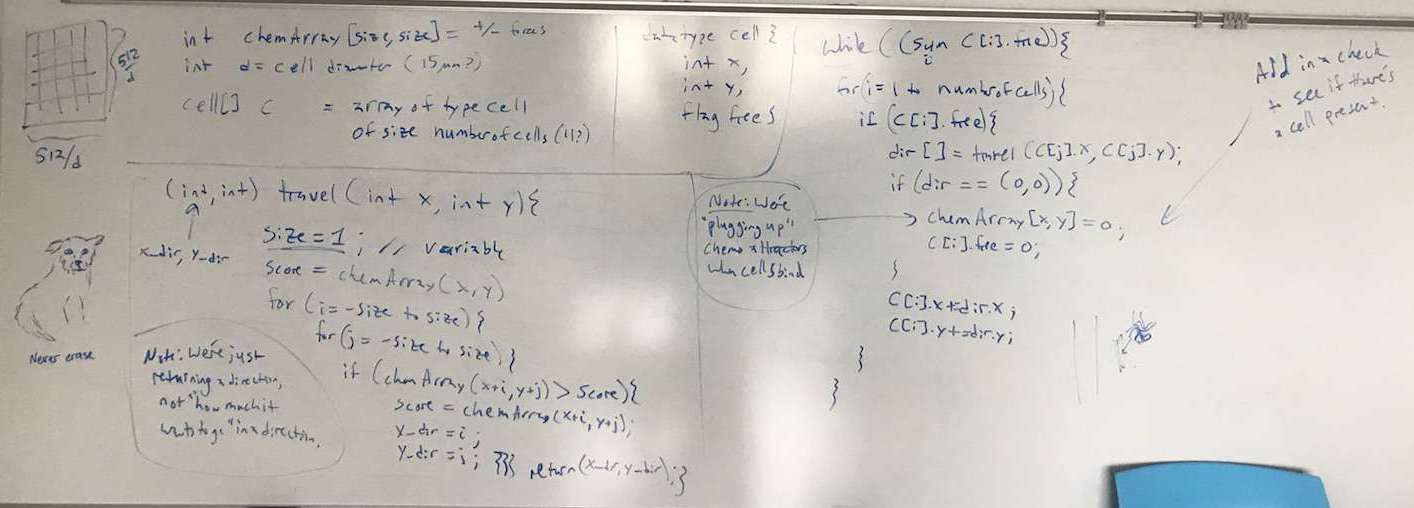 512/d
512/d
int chemArray[size,size] = +/- forces
int d = cell diameter (15µm?)
cell[] C = array of type cell
of size numberofcells (11?)
datatype cell {
int x,
int y,
flag free}
(int, int) travel (int x, int y){
x_dir, y_dir
size = 1; // variable
score = chemArray(x,y)
for (i = -size to size) {
for (j = -size to size) {
if (chemArray(x+i, y+j) > score){
score = chemArray(x+i, y+j);
x_dir = i;
y_dir = j; }}} return(x_dir, y_dir);}
Never erase
Note: We're just
returning a direction,
not "how much it
wants to go" in a direction.
Note: We're
"plugging up"
chemoattractors
when cells bind
while ((sum C[i].free)){
i
for(i=1 to numberofcells){
if (C[i].free){
dir[] = travel (C[j].x, C[j].y);
if (dir == (0,0)){
chemArray[x,y] = 0;
C[i].free = 0;
}
C[i].x+=dir.x;
C[i].y+=dir.y;
}
}
Add in a check
to see if there's
a cell present.